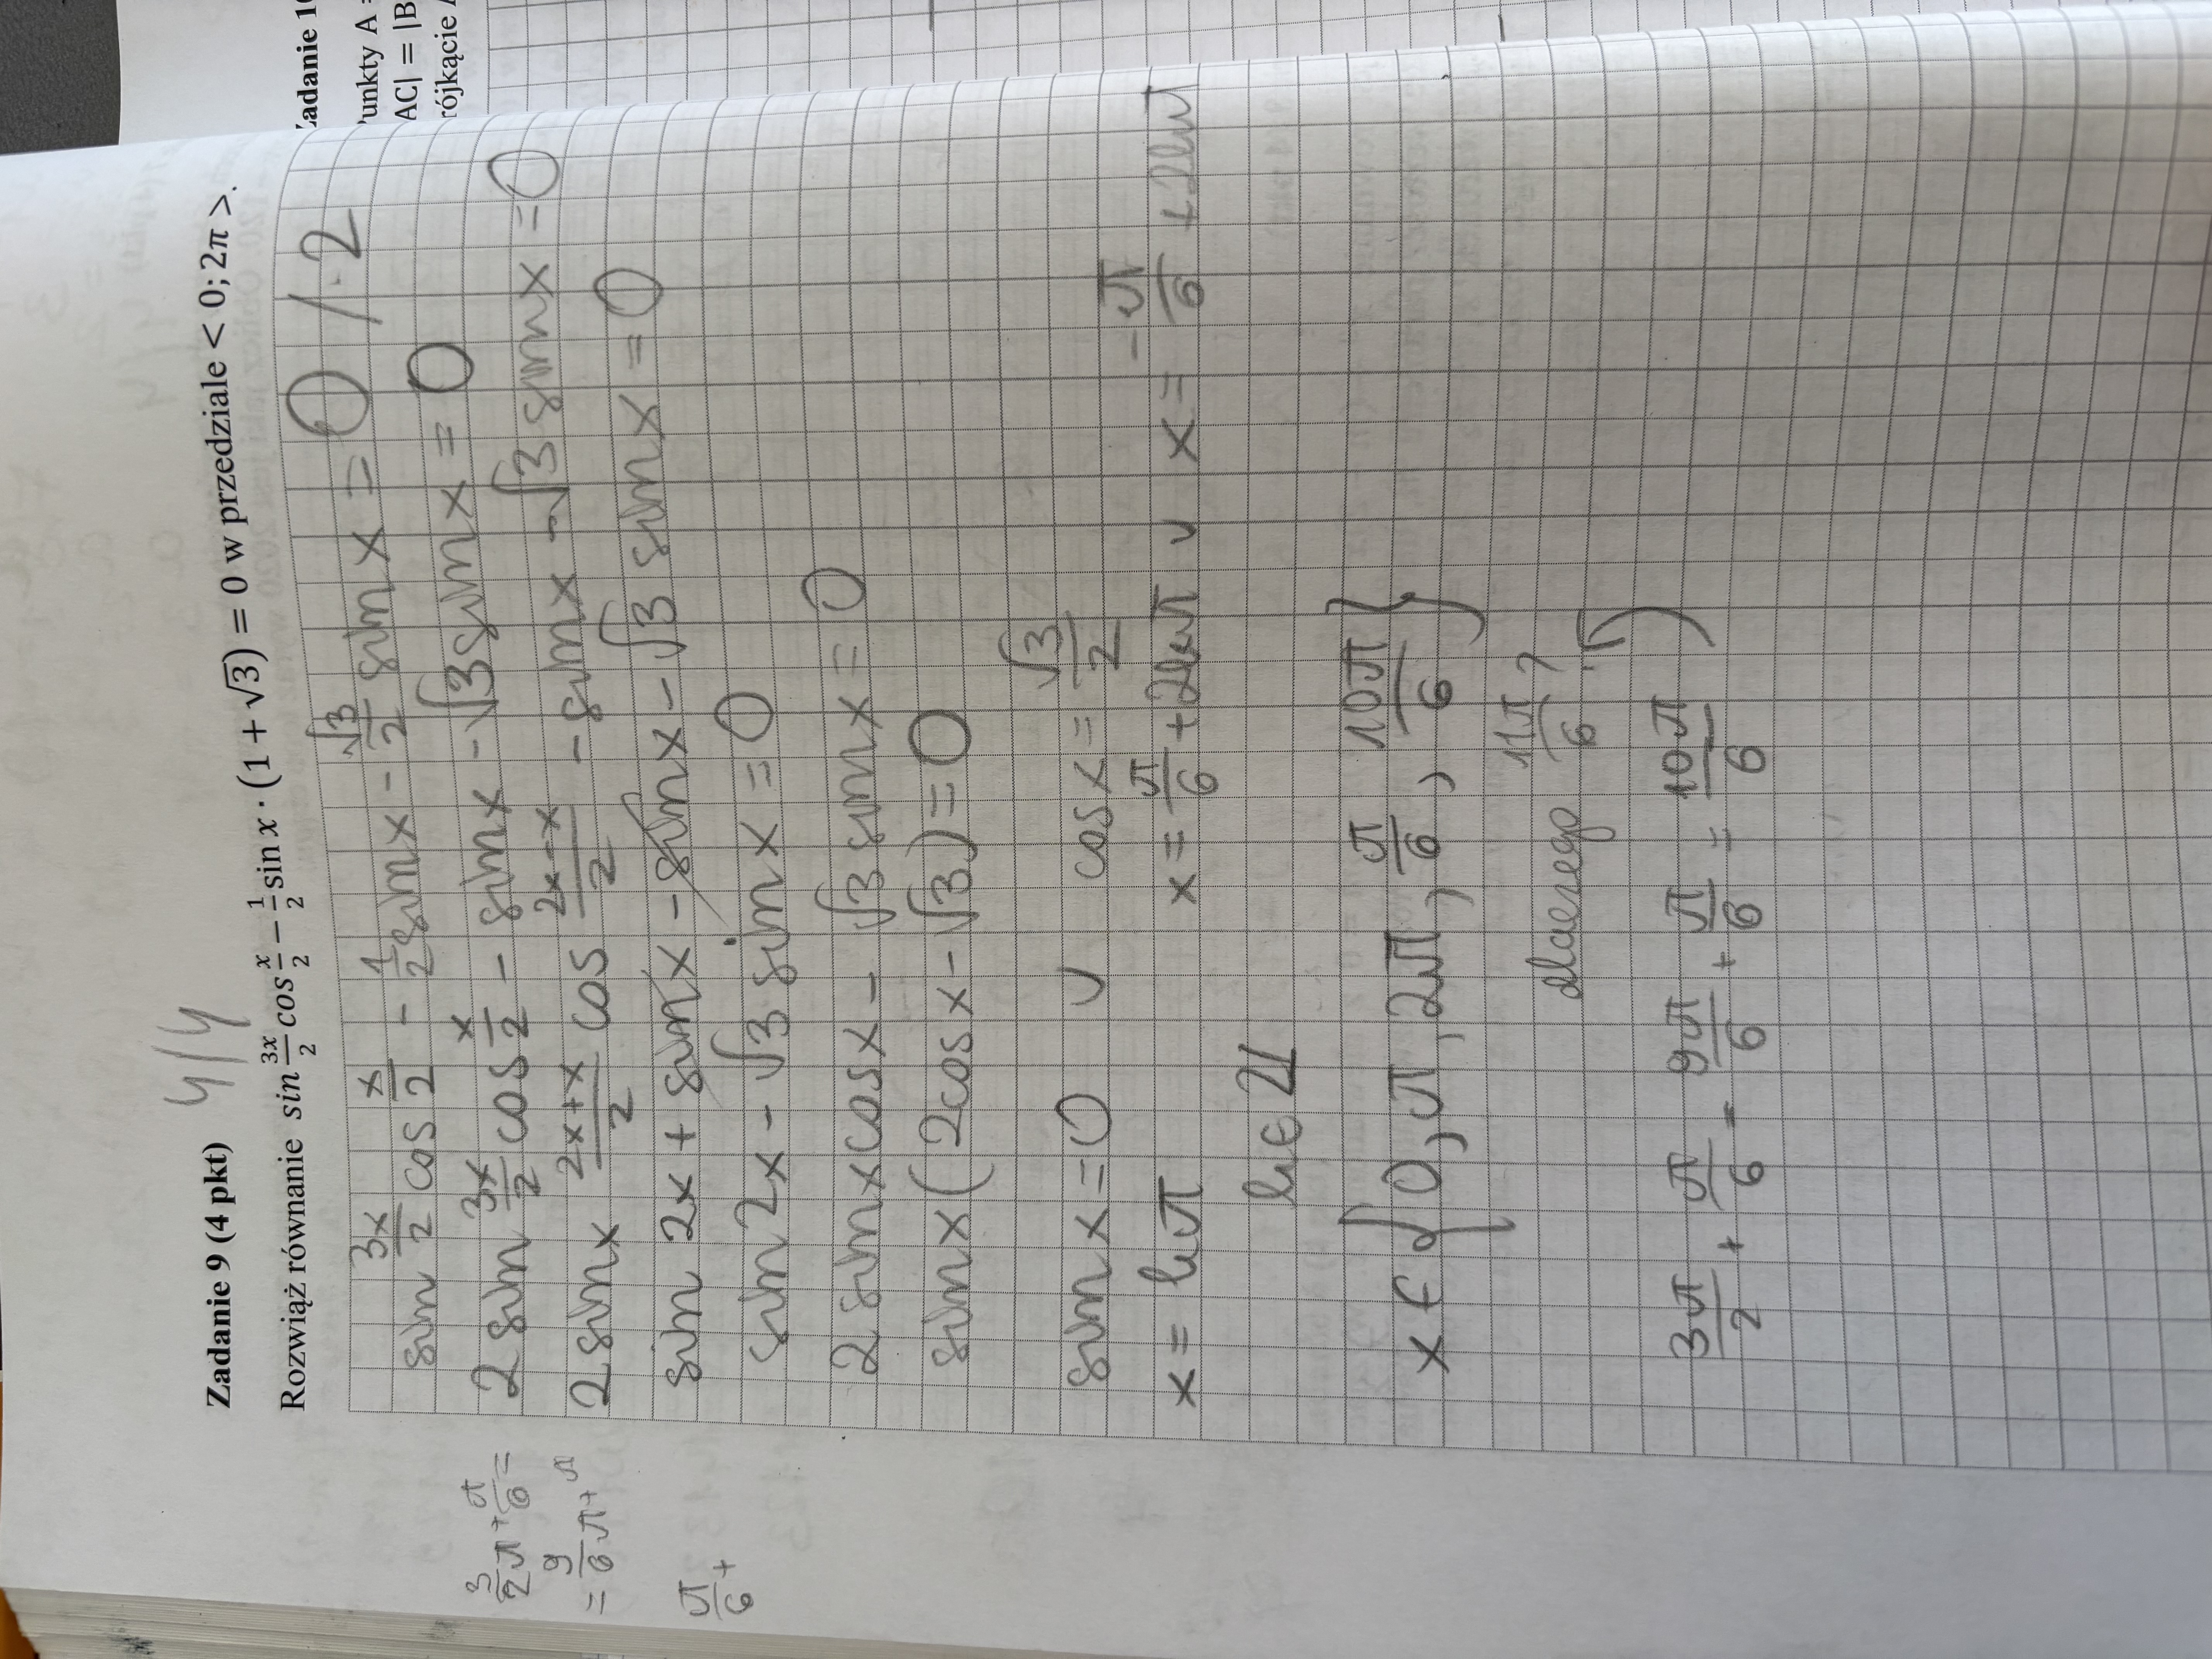 Zadanie 9 (4 pkt)
4/4
Rozwiąż równanie sin 3x/2 cos x/2 − 1/2 sin x · (1 + √3) = 0 w przedziale < 0; 2π >.
sin 3x/2 cos x/2 - 1/2 sinx - √3/2 sinx = 0 /·2
2 sin 3x/2 cos x/2 - sinx - √3 sinx = 0
2 sinx 2x+x/2 cos 2x-x/2 - sinx - √3 sinx = 0
sin 2x + sinx - sinx - √3 sinx = 0
sin 2x - √3 sinx = 0
2 sinx cosx - √3 sinx = 0
sinx (2cosx - √3) = 0
sinx = 0 ∪ cosx = √3/2
x = kπ x = π/6 + 2kπ ∪ x = -π/6 + 2kπ
k ∈ Z
x ∈ { 0, π, 2π, π/6, 10π/6 }
dlaczego 11π/6 ?
3π/2 + π/6 = 9π/6 + π/6 = 10π/6
3/2 π + π/6 =
= 9/6 π + π
π/6 +
Zadanie 10
Punkty A =
AC| = |B
rójkącie